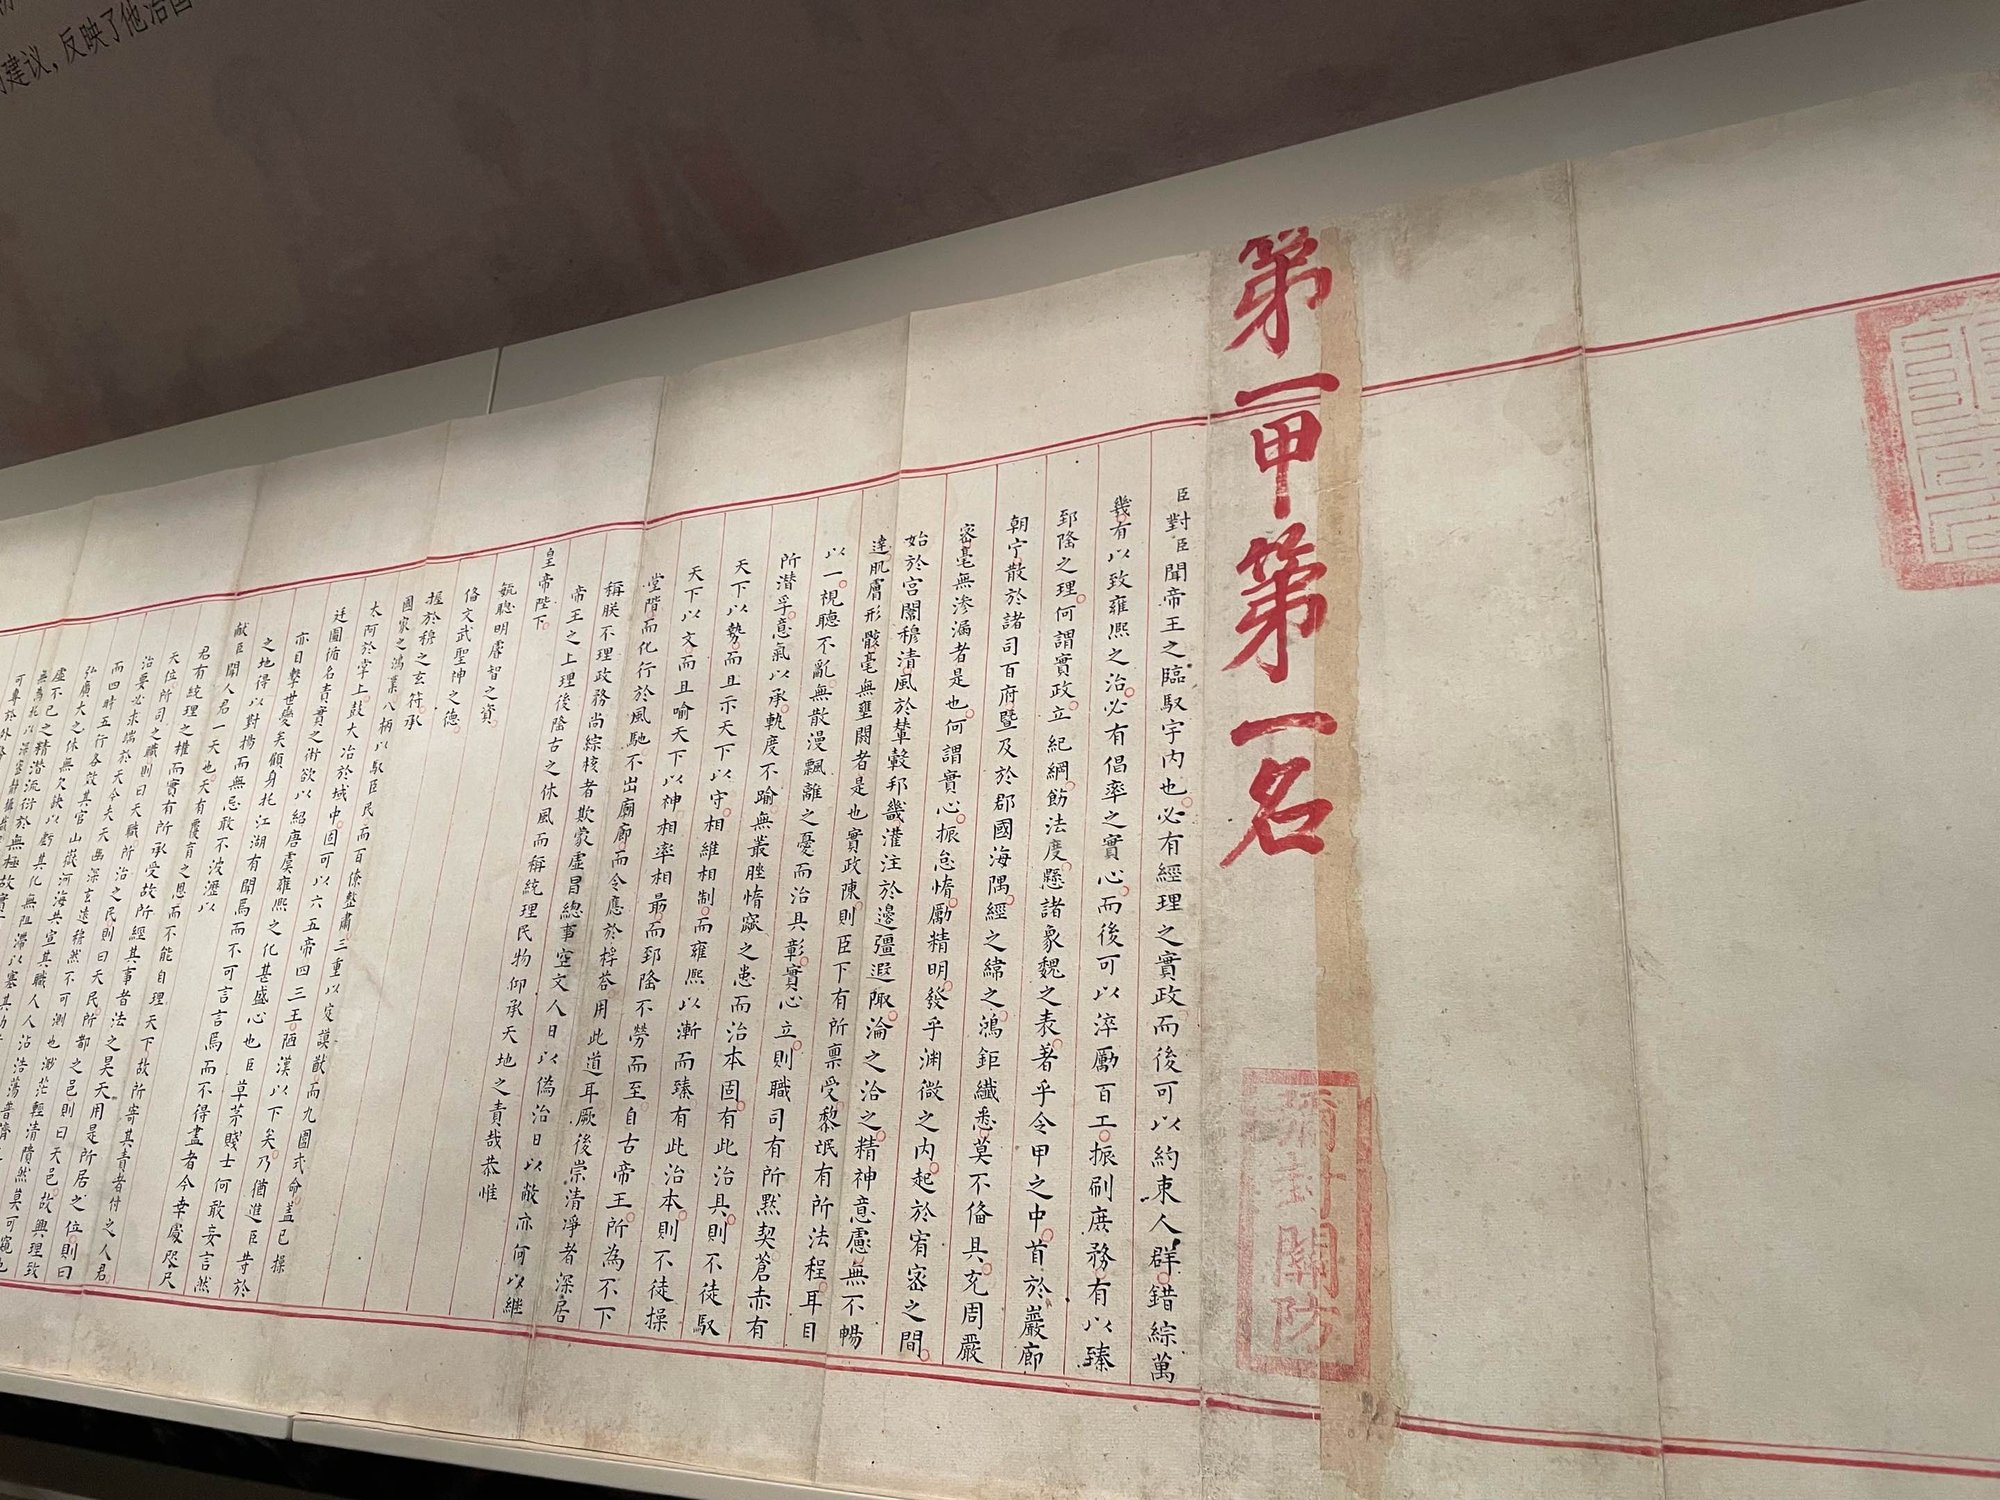 建议，反映了他治国
第一甲第一名
彌封關防
臣對臣聞帝王之臨馭宇内也必有經理之實政而後可以約束人群錯綜萬
幾有以致雍熙之治必有倡率之實心而後可以淬厲百工振刷庶務有以臻
郅隆之理何謂實政立紀綱飭法度懸諸象魏之表著乎令甲之中首於巖廊
朝宁散於諸司百府暨及於郡國海隅經之緯之鴻鉅纖悉莫不俻具充周嚴
密毫無渗漏者是也何謂實心振怠惰勵精明發乎渊微之内起於宥密之間
始於宫闈穆清風於輦轂邦畿灌注於邊疆遐陬淪之洽之精神意慮無不暢
達肌膚形骸毫無壅閼者是也實政陳則臣下有所禀受黎氓有所法程耳目
以一視聽不亂無散漫飄離之憂而治具彰實心立則職司有所默契蒼赤有
所潜孚意氣以承軌度不踰無叢脞惰窳之患而治本固有此治具則不徒馭
天下以勢而且示天下以守相維相制而雍熙以漸而臻有此治本則不徒操
天下以文而且喻天下以神相率相最而郅隆不勞而至自古帝王所為不下
堂階而化行於風馳不出廟廊而令應於桴荅用此道耳厥後崇清凈者深居
稱朕不理政務尚綜核者欺蒙虚冒總事空文人日以偽治日以敝亦何以継
帝王之上理後隆古之休風而稱統理民物仰承天地之責哉恭惟
皇帝陛下
毓聰明睿智之資
俻文武聖神之德
握於穆之玄符承
國家之鴻業八柄以馭臣民而百僚整肅三重以定謨猷而九圍式命盖已操
太阿於掌上鼓大冶於域中固可以六五帝四三王陋漢以下矣乃猶進臣等於
廷圖循名責實之術欲以紹唐虞雍熙之化甚盛心也臣草茅賤士何敢妄言然
亦目擊世變矣顧身托江湖有聞焉而不可言言焉而不得盡者今幸處咫尺
之地得以對揚而無忌敢不披瀝以
献臣聞人君一天也天有覆育之恩而不能自理天下故所寄其責者付之人君
君有統理之權而實有所承受故所經其事者法之昊天用是所居之位則曰
天位所司之職則曰天職所治之民則曰天民所都之邑則曰天邑故興理致
治要必求端於天今夫天幽深玄遠穆然不可測也渺茫輕清隤然莫可窺也
而四時五行各效其官山嶽河海共宣其職人人沾浩蕩普濟
弘廣大之休無欠缺以虧其化無阻滯以塞其功
虚不已之精潜流衍於無極故實
無為托以深密静攝
可專於外務